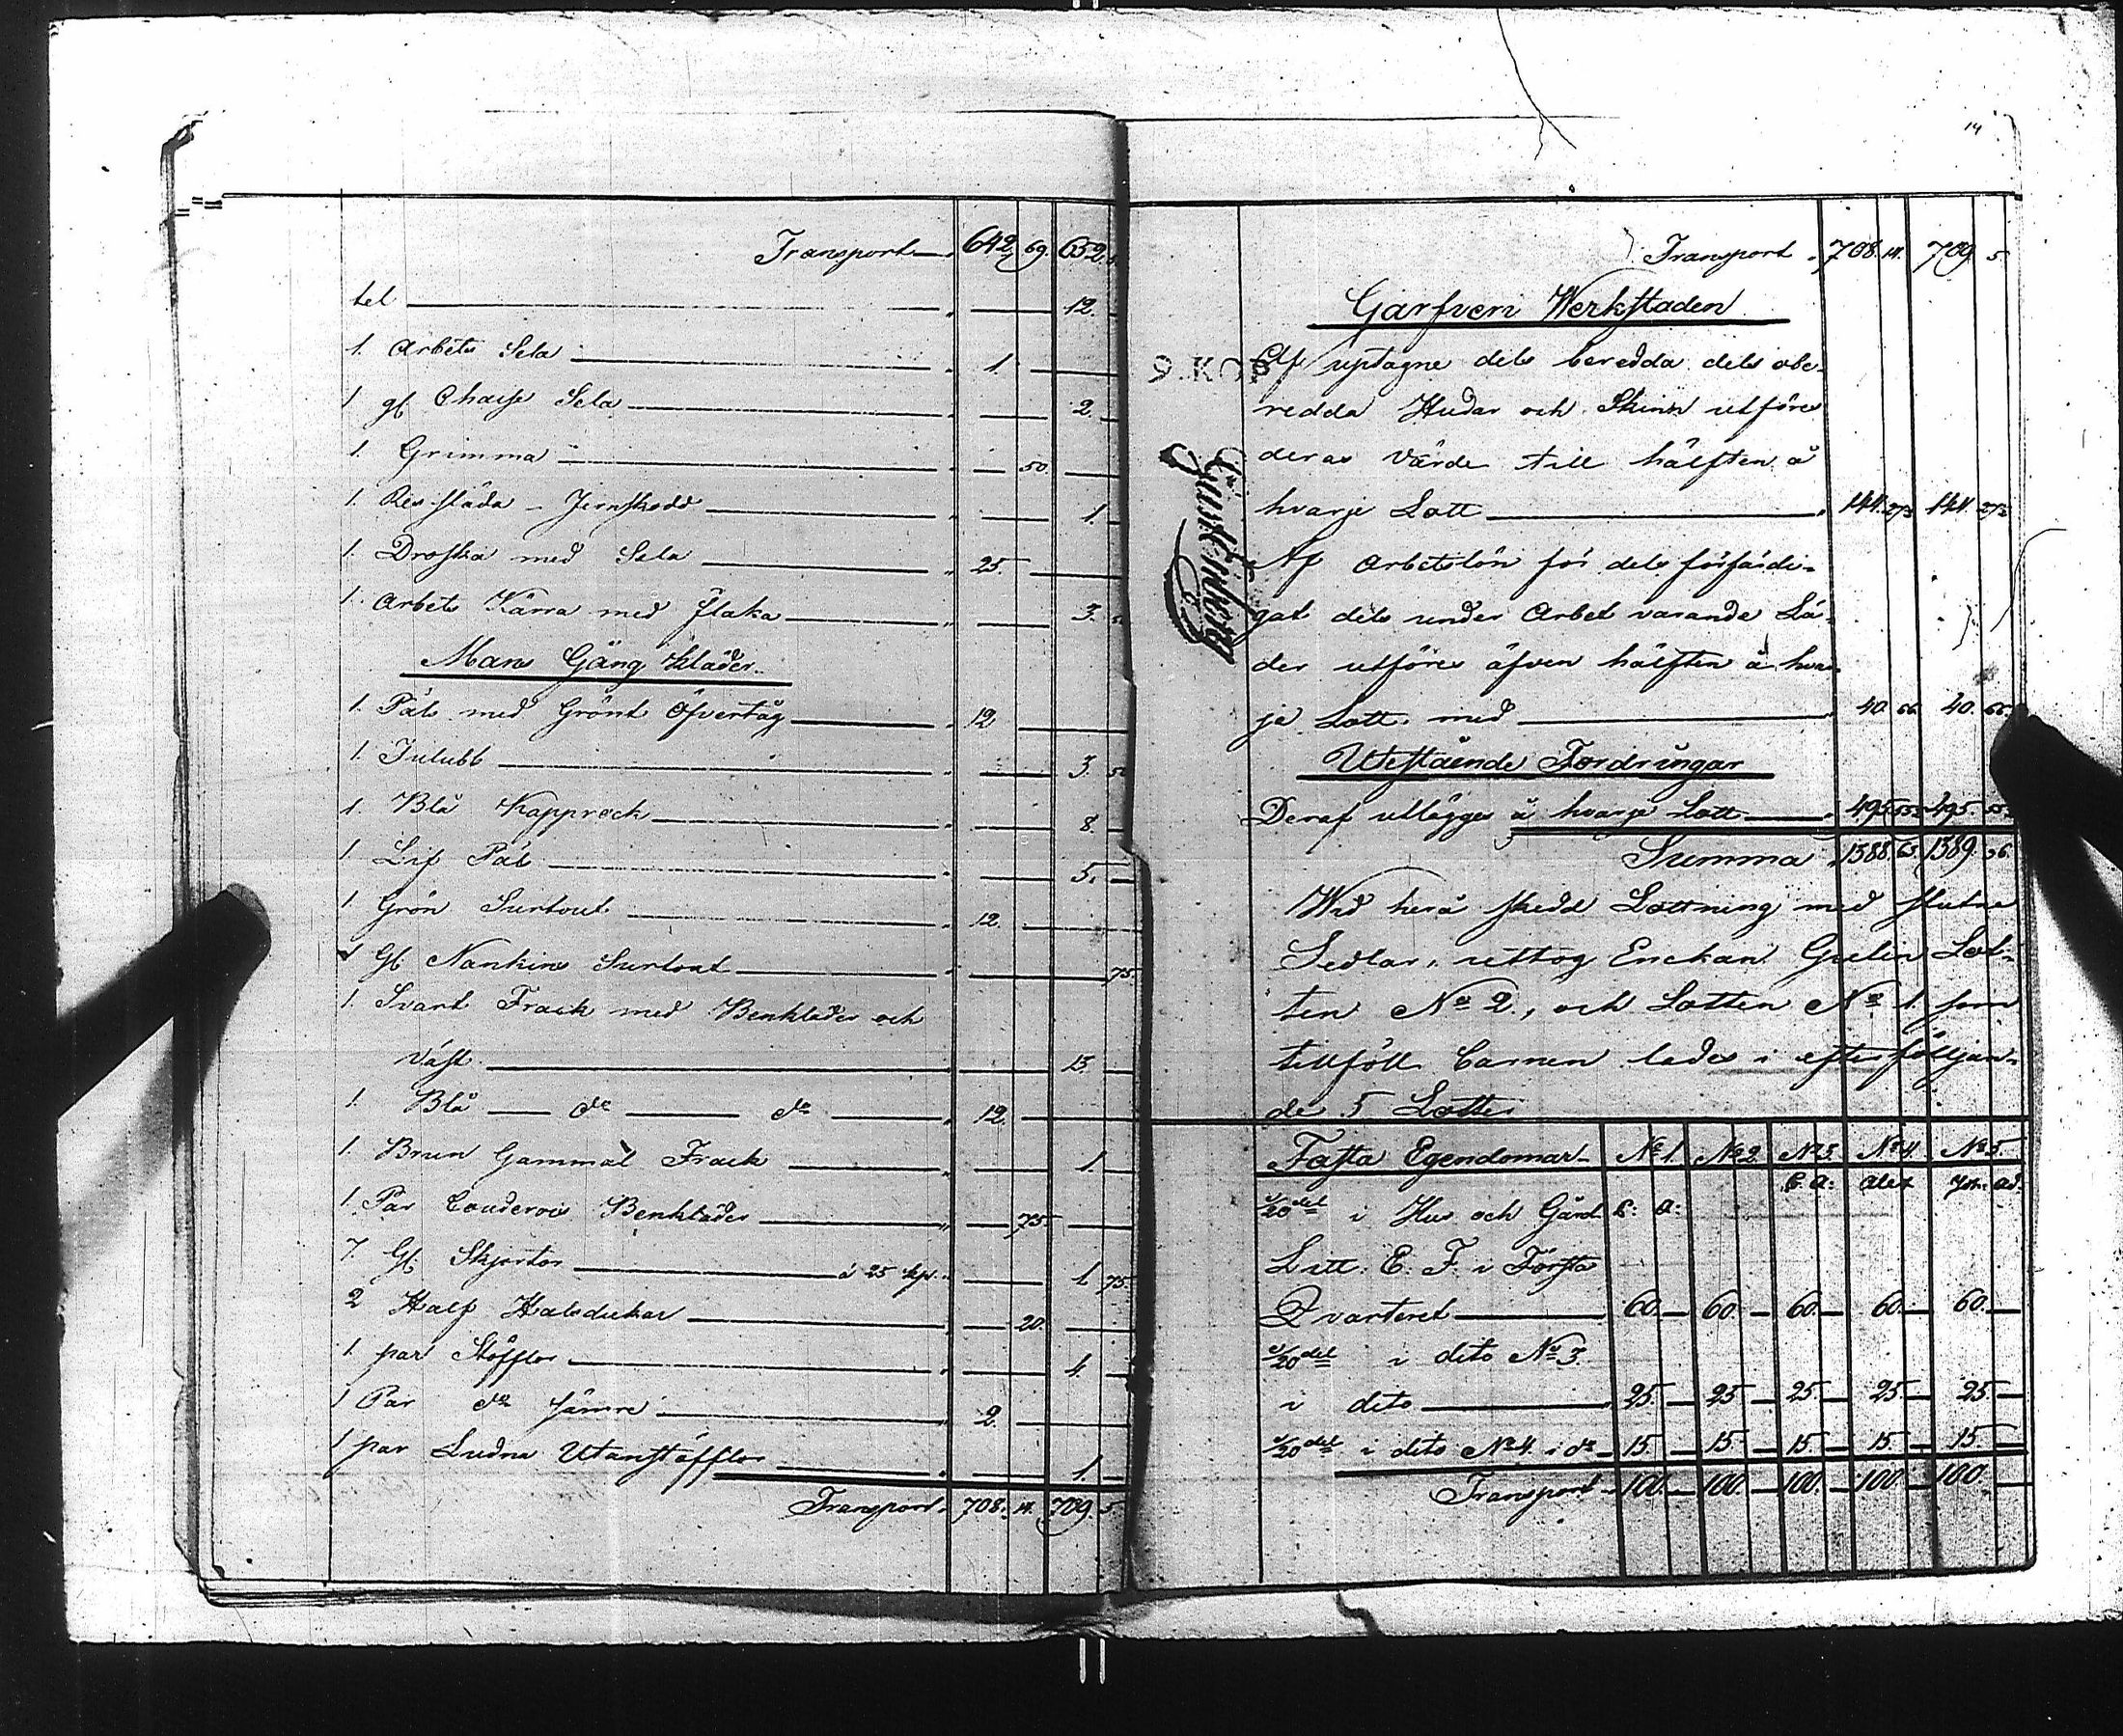 Transport 642. 69. 652.
tel 12.
1. Arbets Sela 1.
1 gl Chaise Sela 2.
1. Grimma 50.
1. Res släda - Jernskodd 1.
1. Droska med Sela 25.
1. Arbets Kärra med flaka 3. 50
Mans Gång kläder
1. Päls med Grönt Öfvertåg 12.
1. Tulubb 3. 50
1. Blå Kapprock 8.
1. Lif Päls 5.
1 Grön Surtout 12.
1 Gl Nankins Surtout 75
1. Svart Frack med Benkläder och
väst 15.
1. Blå do do 12.
1. Brun Gammal Frack 1.
1. Par Benkläder 75
7. Gl. Skjortor à 25 kp. 1. 75
2 Half Halsdukar 20.
1. par Stöfflor 4.
1 Par do sämre 2.
1 par Ludna Utanstöfflor 1.
Transport 708. 14. 709. 5.
14
Transport 708. 14. 709. 5
Garfveri Werkstaden
9. KOP
Af uptagne dels beredda dels obe-
redda Hudar och Skinn utföres
deras värde till hälften å
hvarje Lott 144. 27½ 144. 27½
Af Arbetslön för dels förfärdi-
gat dels under Arbet varande Lä-
der utföres äfven hälften å hvar-
je Lott med 40. 66. 40. 66.
Utestående Fordringar
Deraf utlägges å hvarje Lott 495. 495.
Summa 1388. 1389.
Wid herå skedd Lottning med slutne
Sedlar, uttog Enckan Lot-
ten No 2, och Lotten No 1 som
tillföll Barnen lades i efterföljan-
de 5 Lotter
Fasta Egendomar No 1. No 2. No 3. No 4. No 5.
i Hus och Gård
Litt. E. F. i Första
Qvarteret 60. 60. 60. 60. 60.
i dito No 3.
i dito 25. 25 25 25 25
i dito No 4. i do 15. 15 15 15. 15
Transport 100. 100. 100. 100. 100.